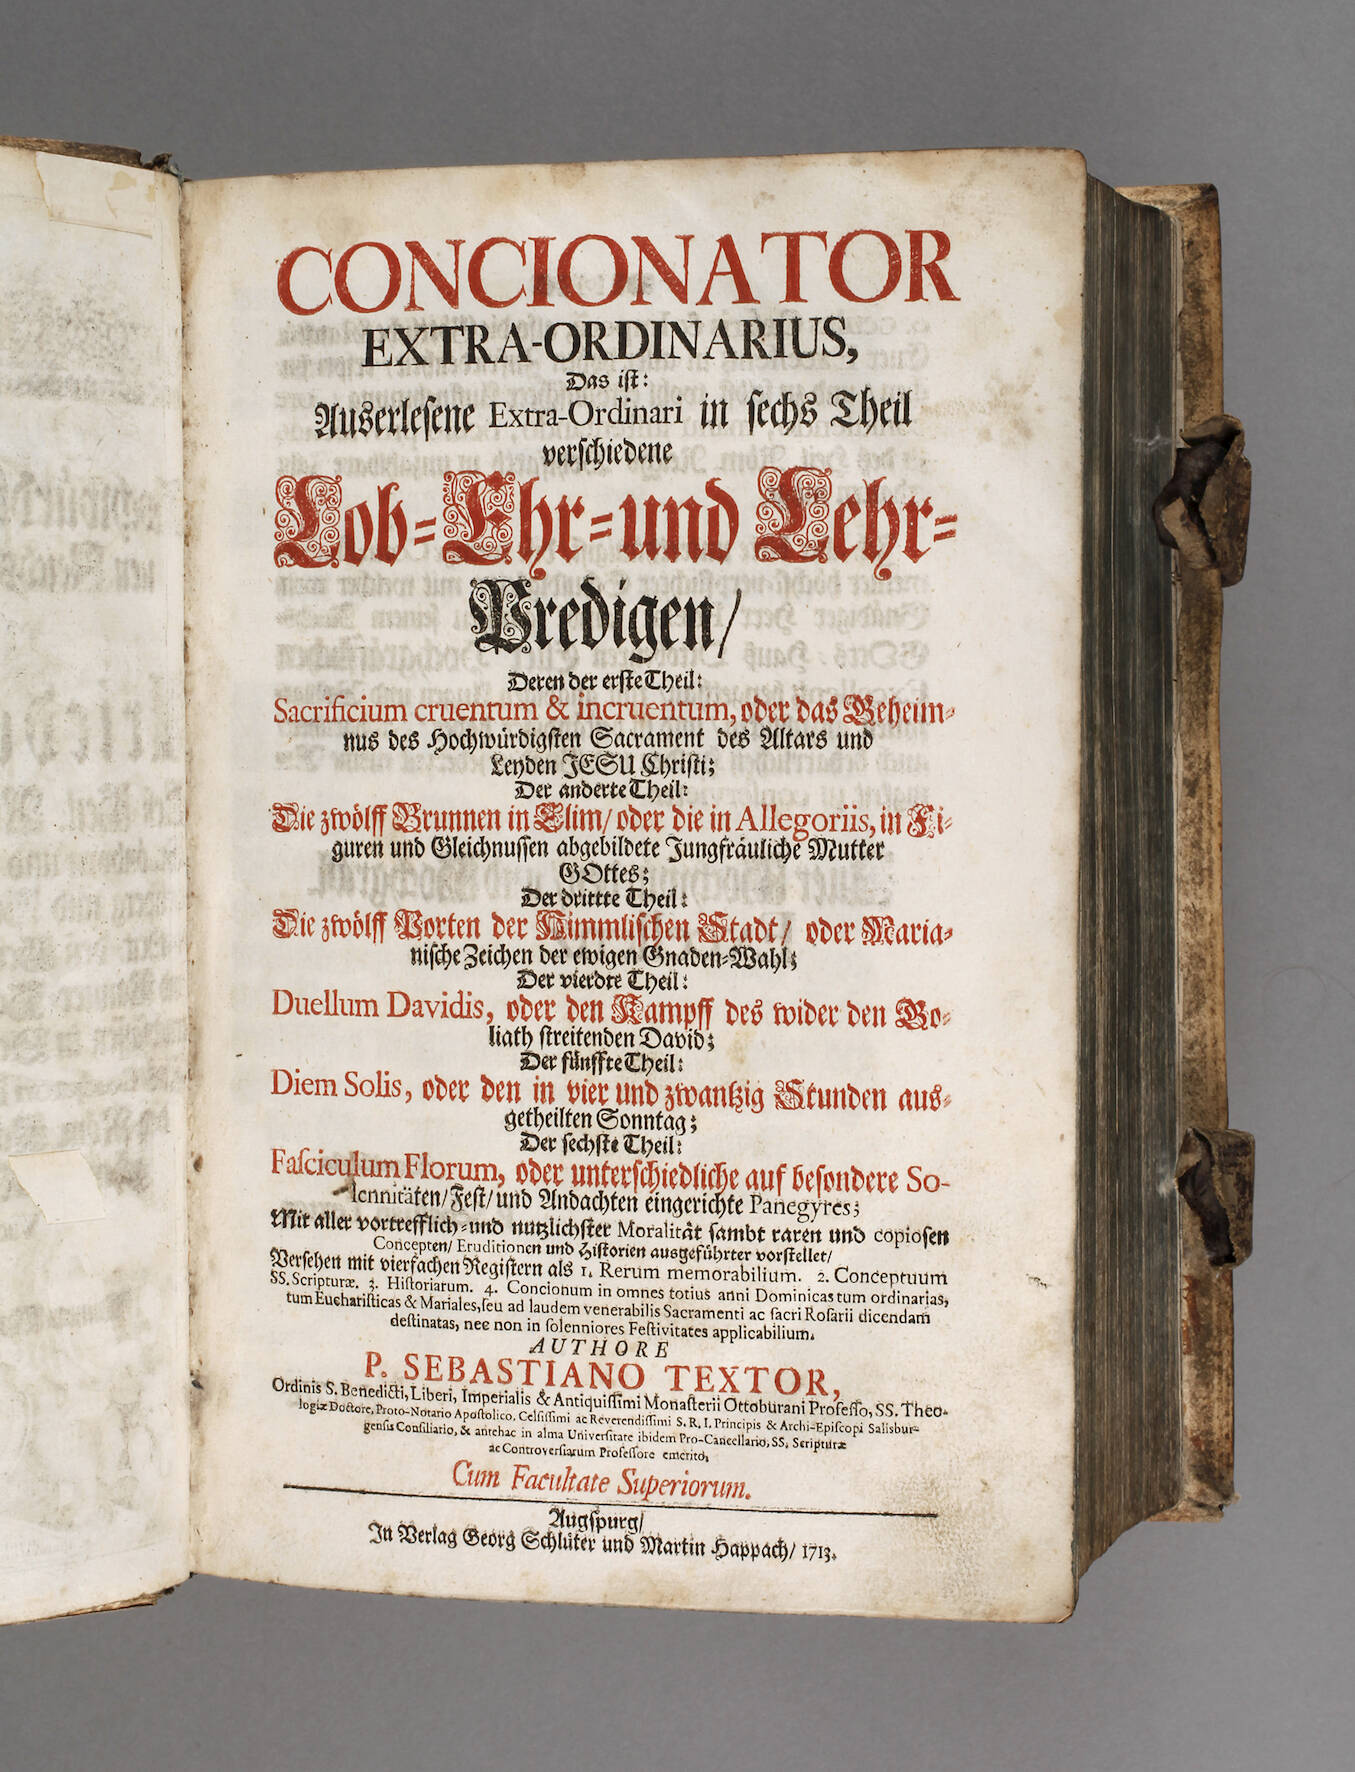 CONCIONATOR
EXTRA-ORDINARIUS,
Das ist:
Auserlesene Extra-Ordinari in sechs Theil
verschiedene
Lob- Ehr- und Lehr-
Predigen/
Deren der erste Theil:
Sacrificium cruentum & incruentum, oder das Geheim-
nus des Hochwürdigsten Sacrament des Altars und
Leyden JESU Christi;
Der anderte Theil:
Die zwölff Brunnen in Elim/ oder die in Allegoriis, in Fi-
guren und Gleichnussen abgebildete Jungfräuliche Mutter
GOttes;
Der drittte Theil:
Die zwölff Porten der Himmlischen Stadt/ oder Maria-
nische Zeichen der ewigen Gnaden-Wahl;
Der vierdte Theil:
Duellum Davidis, oder den Kampff des wider den Go-
liath streitenden David;
Der fünffte Theil:
Diem Solis, oder den in vier und zwantzig Stunden aus-
getheilten Sonntag;
Der sechste Theil:
Fasciculum Florum, oder unterschiedliche auf besondere So-
lennitäten/ Fest/ und Andachten eingerichte Panegyres;
Mit aller vortrefflich- und nutzlichster Moralität sambt raren und copiosen
Concepten/ Eruditionen und Historien ausgeführter vorstellet/
Versehen mit vierfachen Registern als 1. Rerum memorabilium. 2. Conceptuum
SS. Scripturæ. 3. Historiarum. 4. Concionum in omnes totius anni Dominicas tum ordinarias,
tum Eucharisticas & Mariales, seu ad laudem venerabilis Sacramenti ac sacri Rosarii dicendam
destinatas, nec non in solenniores Festivitates applicabilium.
AUTHORE
P. SEBASTIANO TEXTOR,
Ordinis S. Benedicti, Liberi, Imperialis & Antiquissimi Monasterii Ottoburani Professo, SS. Theo-
logiæ Doctore, Proto-Notario Apostolico, Celsissimi ac Reverendissimi S. R. I. Principis & Archi-Episcopi Salisbur-
gensis Consiliario, & antehac in alma Universitate ibidem Pro-Cancellario, SS. Scripturæ
ac Controversiarum Professore emerito,
Cum Facultate Superiorum.
Augspurg/
In Verlag Georg Schlüter und Martin Happach/ 1713.